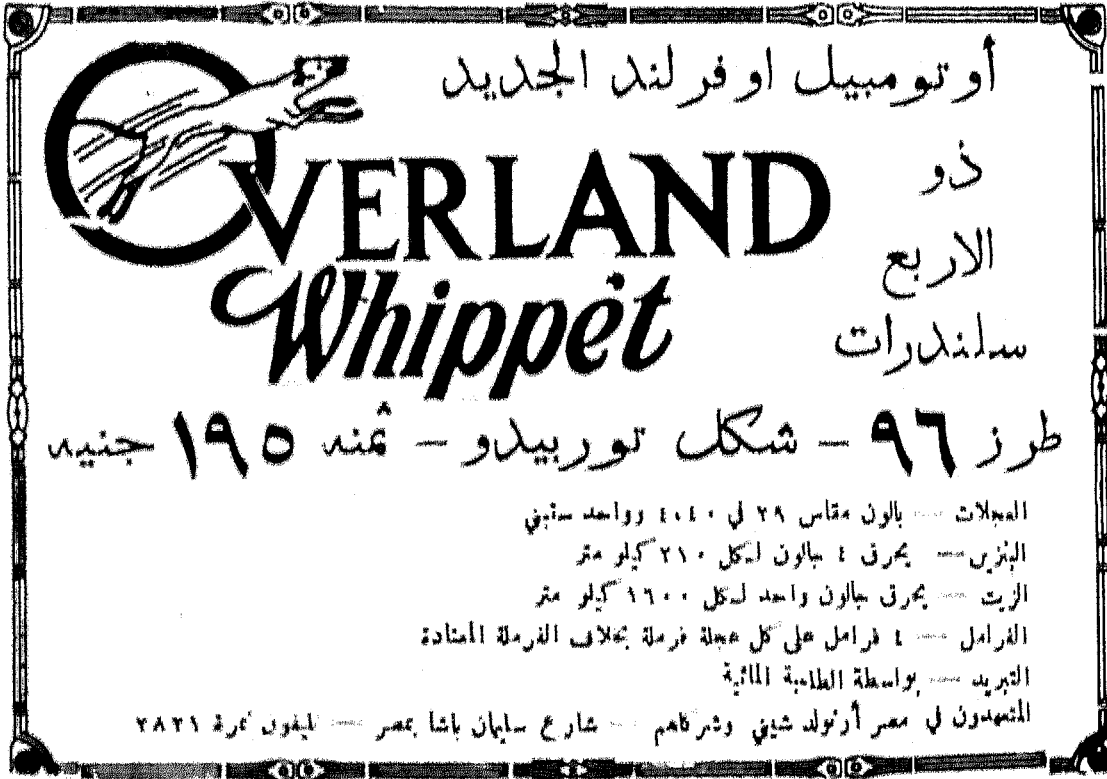 أوتومبيل اوفرلند الجديد
OVERLAND
Whippet
ذو
الاربع
سلندرات
طرز ٩٦ – شكل توربيدو – ثمنه ١٩٥ جنيه
العجلات — بالون مقاس ٢٨ في ٤٠٤٠ وواحد ستبني
البنزين — يحرق ٤ جالون لكل ٢١٠ كيلو متر
الزيت — يحرق جالون واحد لكل ١٦٠٠ كيلو متر
الفرامل — ٤ فرامل على كل عجلة فرملة بخلاف الفرملة المعتادة
التبريد — بواسطة الطلمبة المائية
المتعهدون في مصر أرنولد شيني وشركاهم — شارع سليمان باشا بمصر — تليفون نمرة ٢٨٢١